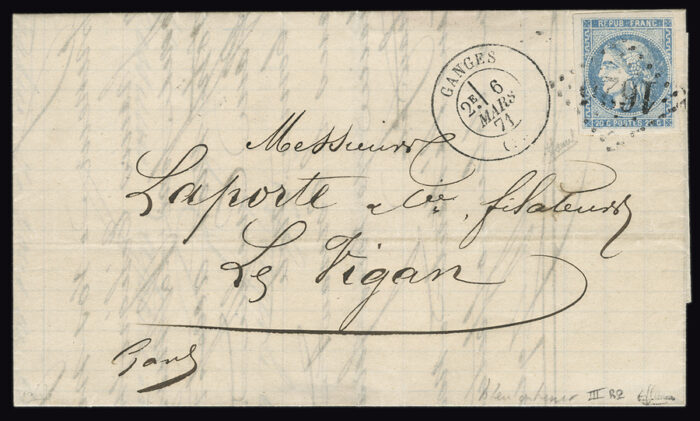 REPUB·FRANC
GANGES
2E 6
MARS
71
20 C POSTES 20 C
Messieurs
Laporte & Cie, filateurs
Le Vigan
Gard
III R2